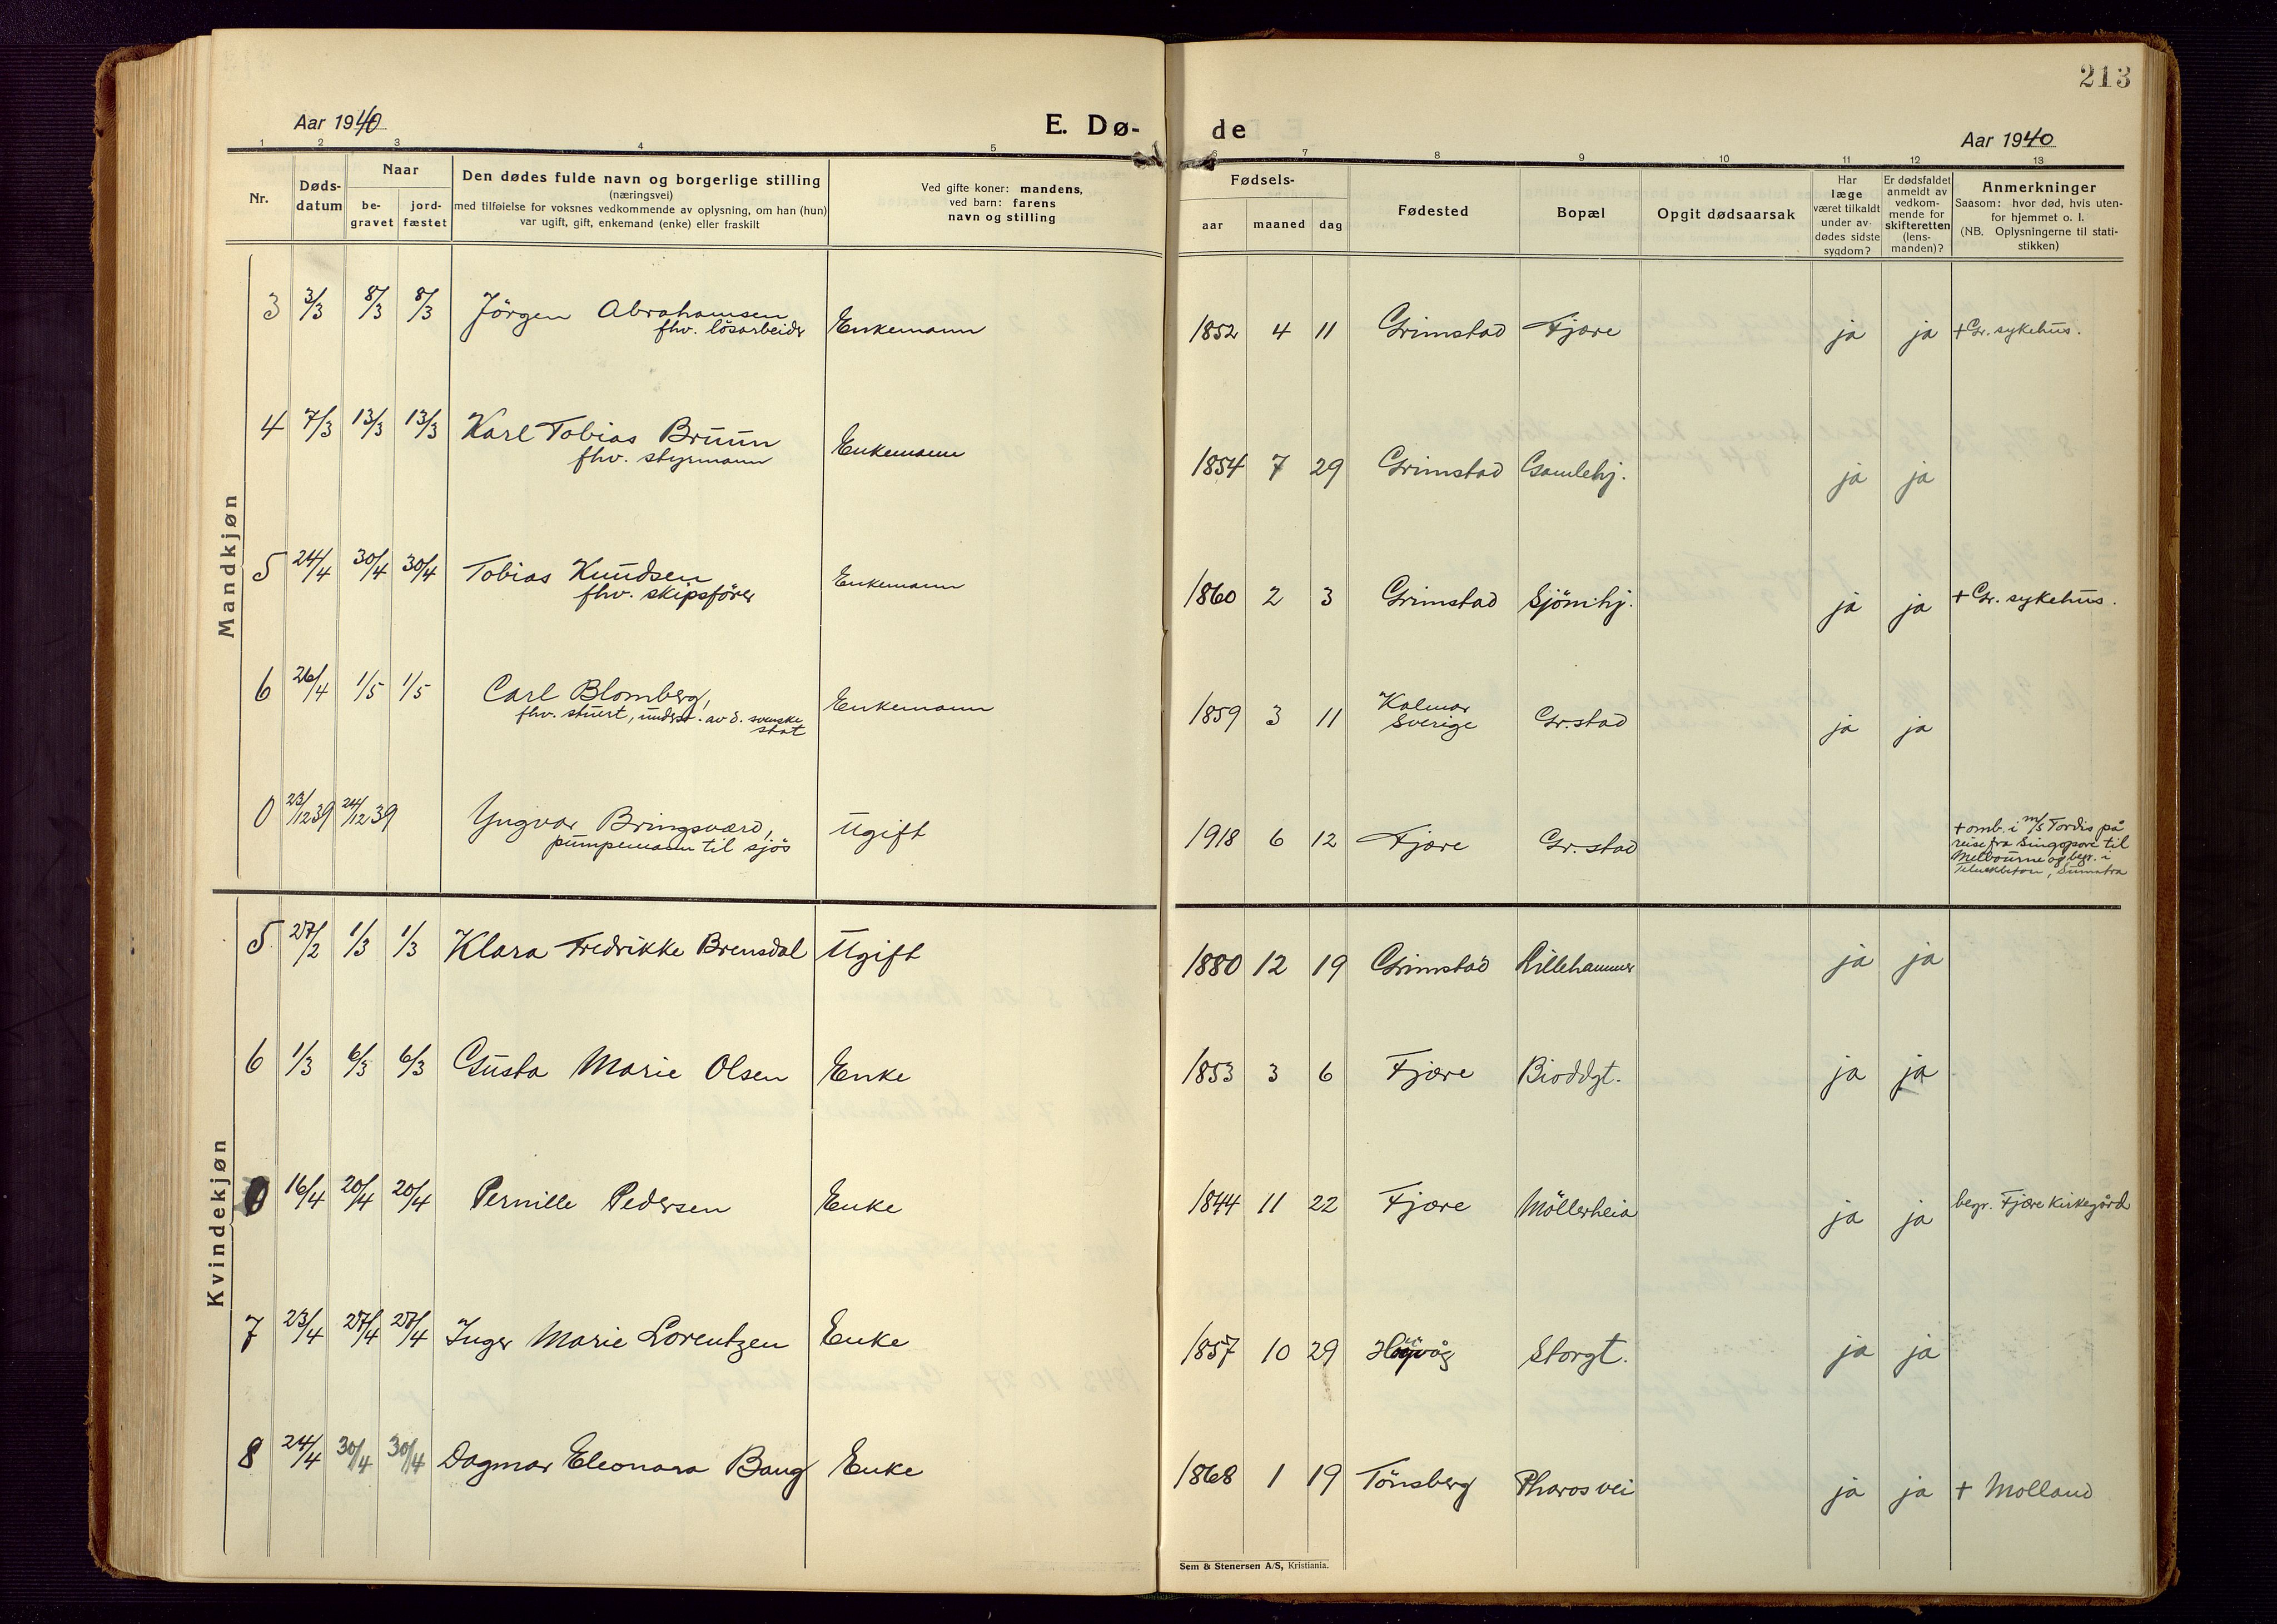 213
Aar 1940
E. Dø-
de
Aar 1940
1 2 3 4 5
6 7 8 9 10 11 12 13
Nr.
Døds-
datum
Naar
be-
gravet
jord-
fæstet
Den dødes fulde navn og borgerlige stilling
(næringsvei)
med tilføielse for voksnes vedkommende av oplysning, om han (hun)
var ugift, gift, enkemand (enke) eller fraskilt
Ved gifte koner: mandens,
ved barn: farens
navn og stilling
Fødsels-
aar
maaned
dag
Fødested
Bopæl
Opgit dødsaarsak
Har
læge
været tilkaldt
under av-
dødes sidste
sygdom?
Er dødsfaldet
anmeldt av
vedkom-
mende for
skifteretten
(lens-
manden)?
Anmerkninger
Saasom: hvor død, hvis uten-
for hjemmet o. l.
(NB. Oplysningerne til stati-
stikken)
Mandkjøn
3 3/3 8/3 8/3 Jörgen Abrahamsen
fhv. lösarbeider
Enkemann 1852 4 11 Grimstad Fjære ja ja + Gr. sykehus.
4 7/3 13/3 13/3 Karl Tobias Bruun
fhv. styrmann
Enkemann 1854 7 29 Grimstad Gamlehj. ja ja
5 24/4 30/4 30/4 Tobias Knudsen
fhv. skipsförer
Enkemann 1860 2 3 Grimstad Sjömhj. ja ja + Gr. sykehus.
6 26/4 1/5 1/5 Carl Blomberg,
fhv. stuert, underst. av d. svenske
stat
Enkemann 1859 3 11 Kalmar
Sverige
Gr.stad ja ja
0 23/12 39 24/12 39 Yngvar Bringsværd,
pumpemann til sjös
Ugift 1918 6 12 Fjære Gr.stad
+ omb. i m/s Tordis på
reise fra Singapore til
Melbourne og begr. i
Sumatra
Kvindekjøn
5 27/2 1/3 1/3 Klara Fredrikke Brensdal Ugift 1880 12 19 Grimstad Lillehammer ja ja
6 1/3 6/3 6/3 Gusta Marie Olsen Enke 1853 3 6 Fjære Bioddgt. ja ja
0 16/4 20/4 20/4 Pernille Pedersen Enke 1844 11 22 Fjære Möllerheia ja ja begr. Fjære kirkegård
7 23/4 27/4 27/4 Inger Marie Lorentzen Enke 1857 10 29 Storgt. ja ja
8 24/4 30/4 30/4 Dagmar Eleonara Baug Enke 1868 1 19 Tönsberg Pharos vei ja ja + Molland
Sem & Stenersen A/S, Kristiania.